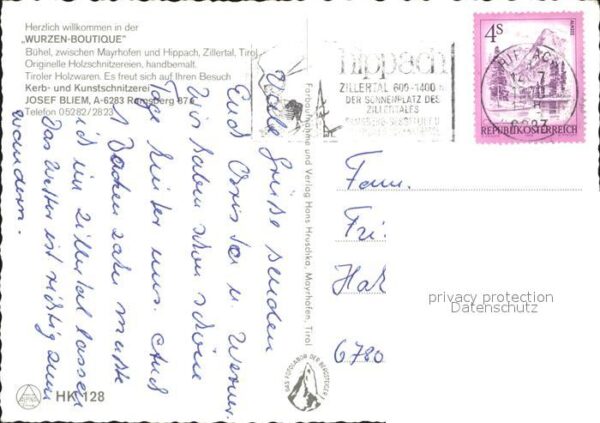 Herzlich willkommen in der
„WURZEN-BOUTIQUE"
Bühel, zwischen Mayrhofen und Hippach, Zillertal, Tirol
Originelle Holzschnitzereien, handbemalt.
Tiroler Holzwaren. Es freut sich auf Ihren Besuch
Kerb- und Kunstschnitzerei
JOSEF BLIEM, A-6283 Ramsberg 87
Telefon 05282/2823
Hippach
ZILLERTAL 600-1400 m
DER SONNENPLATZ DES
ZILLERTALES
4S
REPUBLIK ÖSTERREICH
Viele Grüße senden
Euch Christa u. Werner.
Wir haben schon schöne
Tage hinter uns. Auch
1 Backenzahn mußte
ich im Zillertal lassen
Das Wetter ist richtig zum
wandern.
Farbaufnahme und Verlag Hans Hruschka, Mayrhofen, Tirol
Fam.
Fri
Hak
6780
privacy protection
Datenschutz
DAS EDELLABOR DER BERGSTEIGER
HK 128